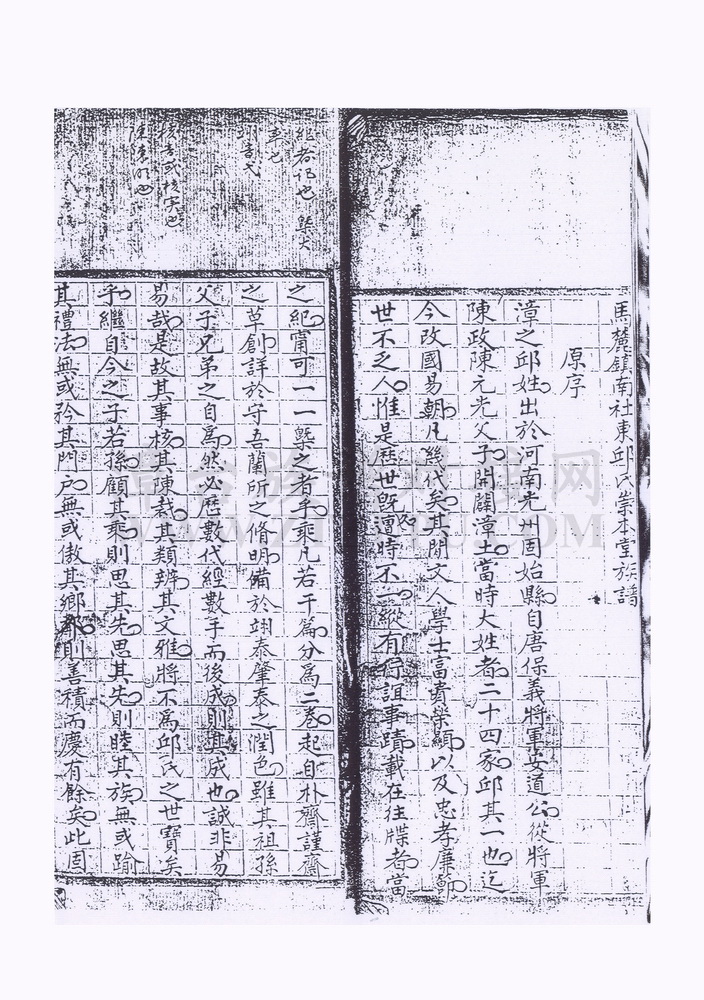 馬麓鎮南社東邱氏崇本堂族譜
原序
漳之邱姓出於河南光州固始縣自唐保義將軍安道公從將軍
陳政陳元光父子開闢漳土當時大姓者二十四家邱其一也迄
今改國易朝凡幾代矣其間文人學士富貴榮顯以及忠孝廉節
世不乏人惟是歷世既遠時不一縱有行誼事蹟載在往牒者當
之紀甯可一一槩之者乎乘凡若干篇分為二卷起自朴齋謹齋
之草創詳於守吾蘭所之脩明備於翊泰肇泰之潤色雖其祖孫
父子兄弟之自為然必歷數代經數手而後成則其成也誠非易
易哉是故其事核其陳裁其類辨其文雅將不為邱氏之世寶矣
乎繼自今之子若孫顧其乘則思其先思其先則睦其族無或踰
其禮法無或矜其門戶無或傲其鄉鄰則善積而慶有餘矣此固